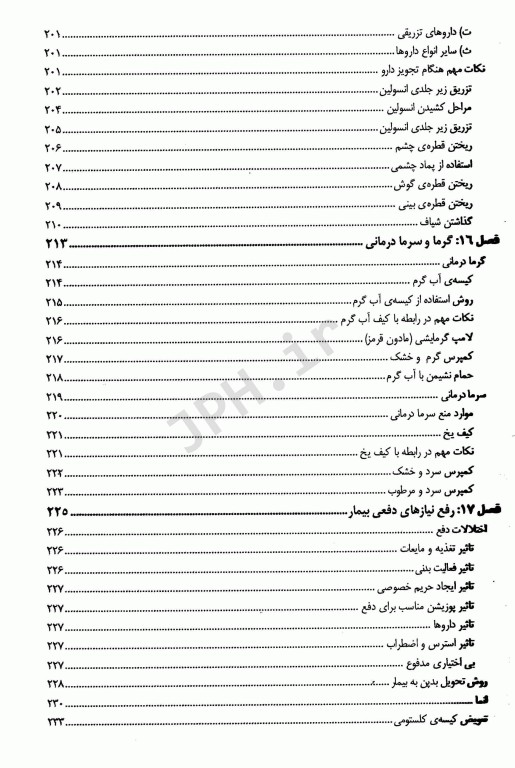 ت) داروهای تزریقی ........ ۲۰۱
ث) سایر انواع داروها ........ ۲۰۱
نکات مهم هنگام تجویز دارو ........ ۲۰۱
تزریق زیر جلدی انسولین ........ ۲۰۲
مراحل کشیدن انسولین ........ ۲۰۴
تزریق زیر جلدی انسولین ........ ۲۰۵
ریختن قطره‌ی چشم ........ ۲۰۶
استفاده از پماد چشمی ........ ۲۰۷
ریختن قطره‌ی گوش ........ ۲۰۸
ریختن قطره‌ی بینی ........ ۲۰۹
گذاشتن شیاف ........ ۲۱۰
فصل ۱۶: گرما و سرما درمانی ........ ۲۱۳
گرما درمانی ........ ۲۱۴
کیسه‌ی آب گرم ........ ۲۱۴
روش استفاده از کیسه‌ی آب گرم ........ ۲۱۵
نکات مهم در رابطه با کیف آب گرم ........ ۲۱۶
لامپ گرمایشی (مادون قرمز) ........ ۲۱۶
کمپرس گرم و خشک ........ ۲۱۷
حمام نشیمن با آب گرم ........ ۲۱۸
سرما درمانی ........ ۲۱۹
موارد منع سرما درمانی ........ ۲۲۰
کیف یخ ........ ۲۲۱
نکات مهم در رابطه با کیف یخ ........ ۲۲۱
کمپرس سرد و خشک ........ ۲۲۲
کمپرس سرد و مرطوب ........ ۲۲۳
فصل ۱۷: رفع نیازهای دفعی بیمار ........ ۲۲۵
اختلالات دفع ........ ۲۲۶
تاثیر تغذیه و مایعات ........ ۲۲۶
تاثیر فعالیت بدنی ........ ۲۲۶
تاثیر ایجاد حریم خصوصی ........ ۲۲۷
تاثیر پوزیشن مناسب برای دفع ........ ۲۲۷
تاثیر داروها ........ ۲۲۷
تاثیر استرس و اضطراب ........ ۲۲۷
بی اختیاری مدفوع ........ ۲۲۷
روش تحویل بدپن به بیمار ........ ۲۲۸
انما ........ ۲۳۰
تعویض کیسه‌ی کلستومی ........ ۲۳۳
JPH.ir